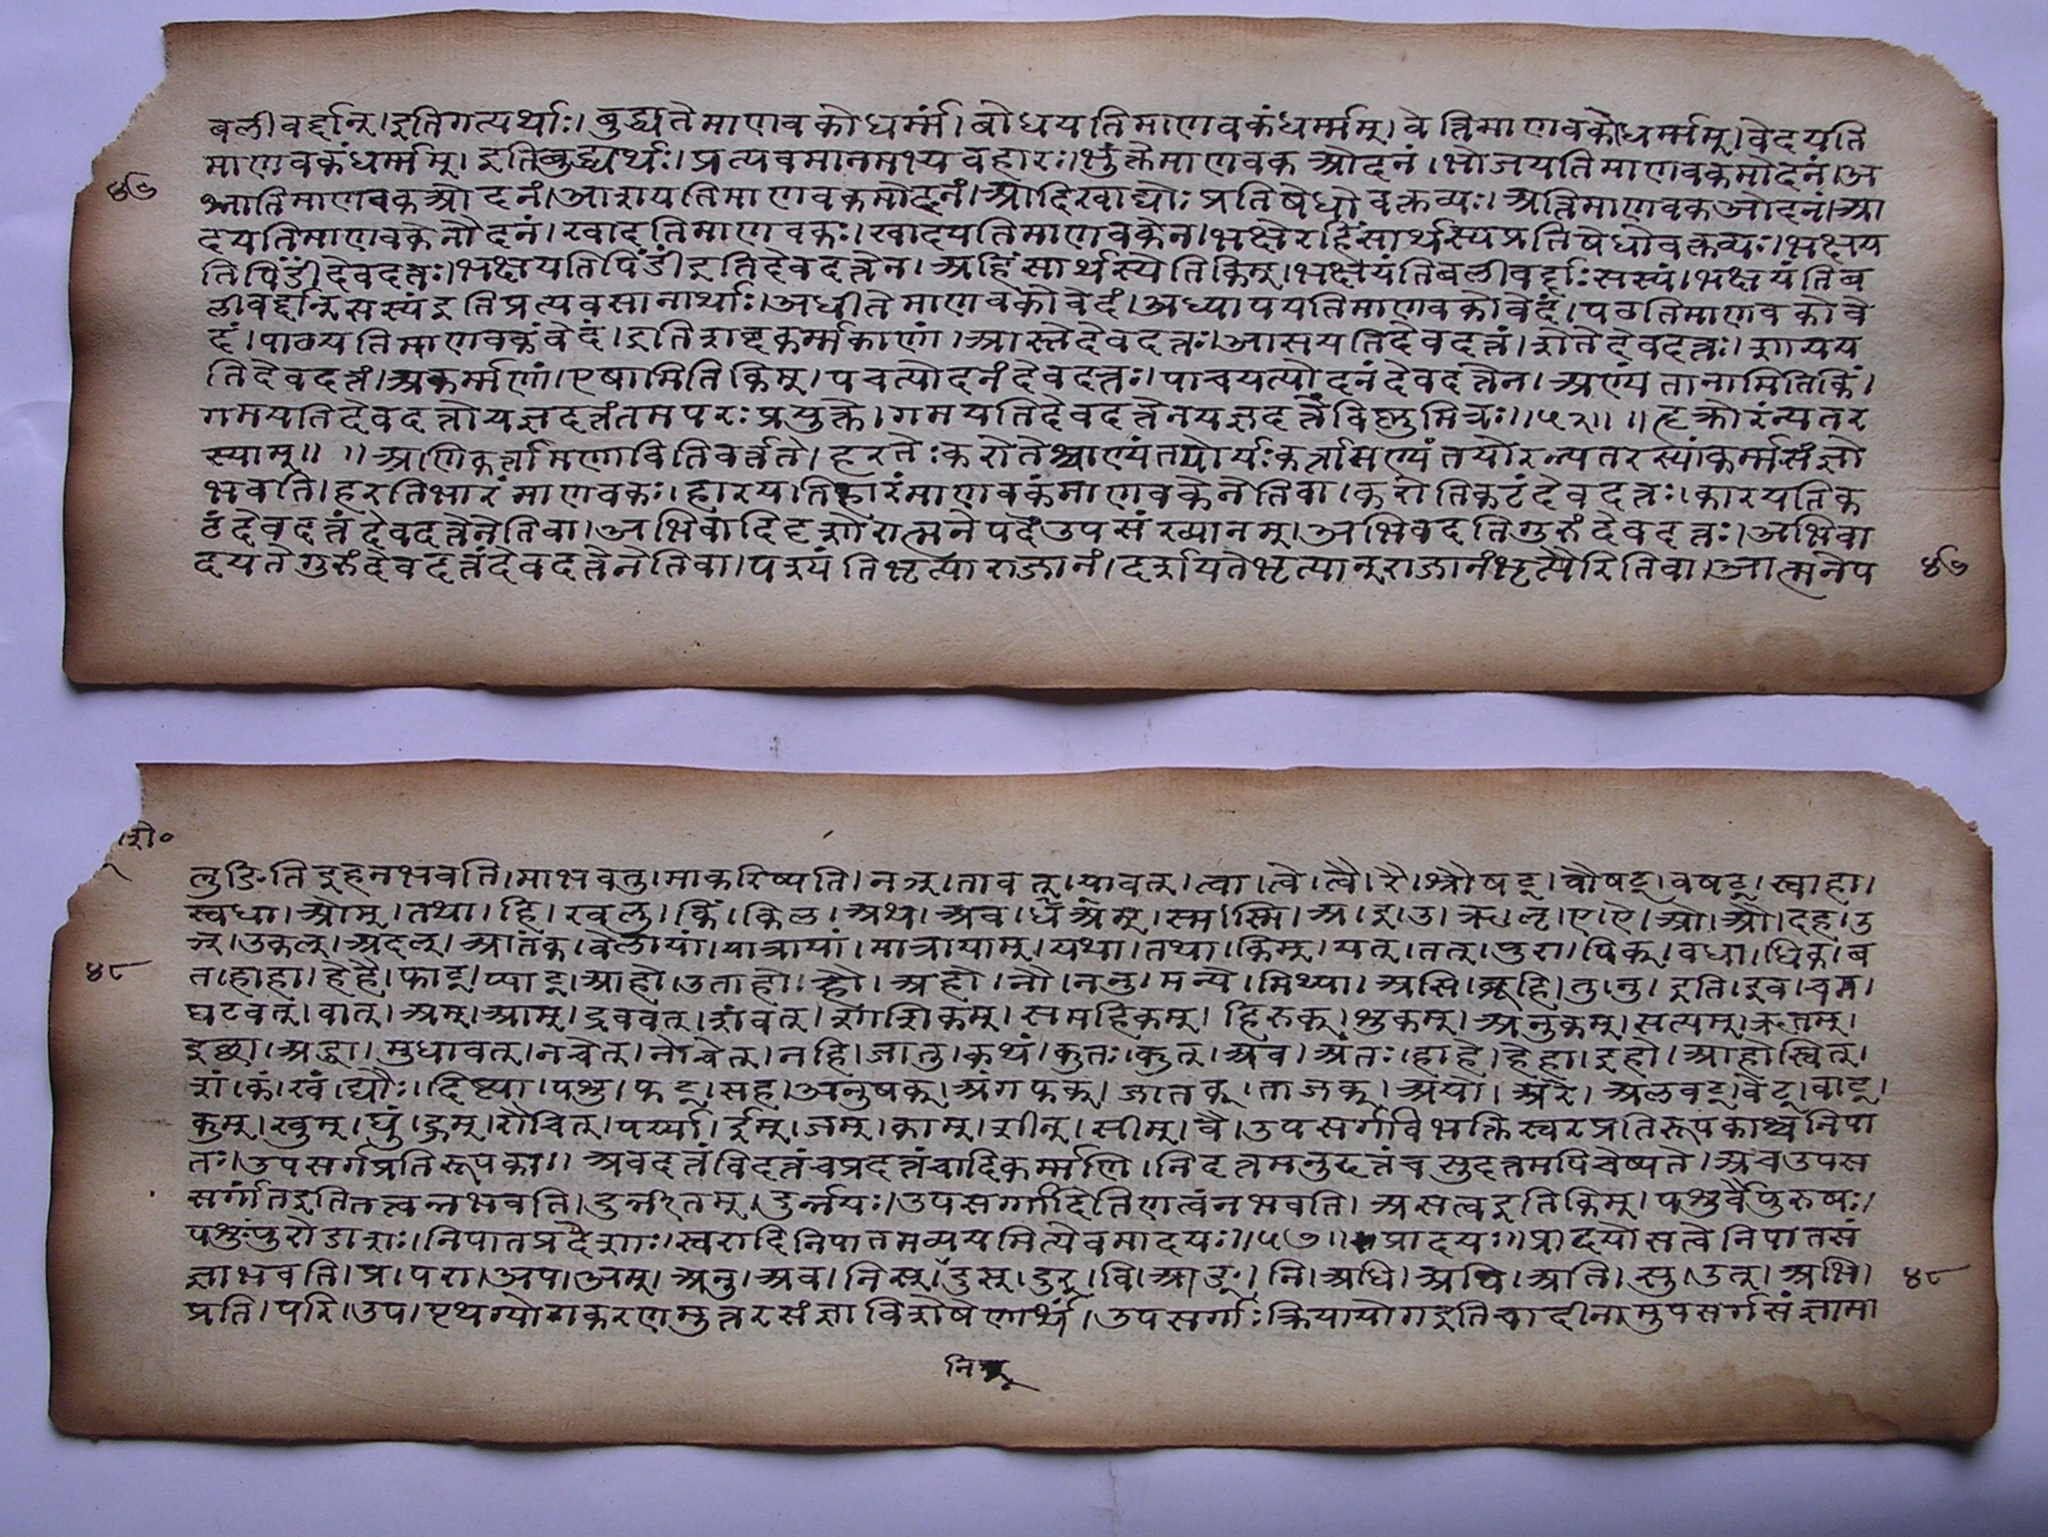 बलीवर्द्दान्।इतिगत्यर्थाः।बुद्ध्यतेमाणवकोधर्म्मं।बोधयतिमाणवकंधर्म्मम्।वेत्तिमाणवकोधर्म्मम्।वेदयति
माणवकंधर्म्मम्।इतिबुद्ध्यर्थः।प्रत्यवमानमभ्यवहारः।भुंक्तेमाणवकओदनं।भोजयतिमाणवकमोदनं।अ
४७
श्नातिमाणवकओदनं।आशयतिमाणवकमोदनं।आदिखाद्योःप्रतिषेधोवक्तव्यः।अत्तिमाणवकओदनं।आ
दयतिमाणवकेनौदनं।खादतिमाणवकः।खादयतिमाणवकेन।भक्षेरहिंसार्थस्यप्रतिषेधोवक्तव्यः।भक्षय
तिपिंडीदेवदत्तः।भक्षयतिपिंडीइतिदेवदत्तेन।अहिंसार्थस्येतिकिम्।भक्षयंतिबलीवर्द्दाःसस्यं।भक्षयंतिब
लीवर्द्दान्सस्यंइतिप्रत्यवसानार्थाः।अधीतेमाणवकोवेदं।अध्यापयतिमाणवकोवेदं।पठतिमाणवकोवे
दं।पाठयतिमाणवकंवेदं।इतिशब्दकर्म्मकाणां।आस्तेदेवदत्तः।आसयतिदेवदत्तं।शेतेदेवदत्तः।शायय
तिदेवदत्तं।अकर्म्मणां।एषामितिकिम्।पचत्योदनंदेवदत्तः।पाचयत्योदनंदेवदत्तेन।अण्यंतानामितिकिं।
गमयतिदेवदत्तोयज्ञदत्तंतमपरःप्रयुक्ते।गमयतिदेवदत्तेनयज्ञदत्तंविष्णुमित्रः॥५२॥ ॥हृक्रोरन्यतर
स्याम्॥ ॥अणिकर्त्तामणावितिवर्त्तते।हरतेःकरोतेश्चाण्यंतयोर्यःकर्त्तासण्यंतयोरन्यतरस्यांकर्म्मसंज्ञो
भवति।हरतिभारंमाणवकः।हारयतिभारंमाणवकंमाणवकेनेतिवा।करोतिकटंदेवदत्तः।कारयतिक
टंदेवदत्तंदेवदत्तेनेतिवा।अभिवादिदृशोरात्मनेपदेउपसंख्यानम्।अभिवदतिगुरुंदेवदत्तः।अभिवा
दयतेगुरुंदेवदत्तंदेवदत्तेनेतिवा।पश्यंतिभृत्याराजानं।दर्शयतेभृत्यान्राजानंभृत्यैरितिवा।आत्मनेप
४७
लुङितिइहनभवति।माभवतु।माकरिष्यति।नञ्।तावत्।यावत्।त्वा।त्वे।त्वै।रै।श्रौषट्।वौषट्।वषट्।स्वाहा।
स्वधा।ओम्।तथा।हि।खलु।किं।किल।अथ।अव।स्म।स्मि।अ।इ।उ।ऋ।लृ।ए।ऐ।ओ।औ।दह।उ
ञ्।उकल्।अदल्।आतंक।वेलायां।यात्रायां।मात्रायाम्।यथा।तथा।किम्।यत्।तत्।पुरा।पिक्।वधा।धिक्।ब
४८
त।हाहा।हेहै।फाट्।प्याट्।आहो।उताहो।हो।अहो।नौ।ननु।मन्ये।मिथ्या।असि।ब्रूहि।तु।नु।इति।इव।चन।
घटवत्।वात्।अम्।आम्।द्रववत्।शंवत्।शंशिकम्।समहिकम्।हिरुक्।शुकम्।अनुकम्।सत्यम्।ऋतम्।
इद्धा।अद्धा।मुधावत्।नचेत्।नोचेत्।नहि।जातु।कथं।कुतः।कुत्।अव।अंतः।हाहे।हेहा।इहो।आहोस्वित्।
शं।कं।खं।द्यौः।दिष्ट्या।पशु।फट्।सह।अनुषक्।अंगफक्।जातक्।ताजक्।अये।अरे।अलवट्।वेट्।वाट्।
कुम्।खुम्।घुं।हुम्।शैचित्।पर्य्या।ईम्।जम्।काम्।शीन्।सीम्।वै।उपसर्गविभक्तिस्वरप्रतिरूपकाश्चनिपा
तः।उपसर्गप्रतिरूपका॥अवदत्तंविदत्तंचप्रदत्तंचादिकर्म्मणि।निदत्तमनुदत्तंचसुदत्तमपिचेष्यते।अचउपस
सर्ग्गातइतितत्वन्नभवति।दुर्न्नीतम्।दुर्न्नयः।उपसर्ग्गादितिणत्वंनभवति।असत्वइतिकिम्।पशुर्वैपुरुषः।
पशुःपुरोडाशः।निपातप्रदेशाः।स्वरादिनिपातमव्ययमित्येवमादयः॥५७॥प्रादय॥प्रादयोसत्वेनिपातसं
ज्ञाभवति।प्र।परा।अप।अम्।अनु।अव।निस्।दुस्।दुर्।वि।आङ्।नि।अधि।अपि।अति।सु।उत्।अभि।
४८
प्रति।परि।उप।पृथग्योगकरणमुत्तरसंज्ञाविशेषणार्थं।उपसर्गाःक्रियायोगइतिचादीनामुपसर्गसंज्ञामा